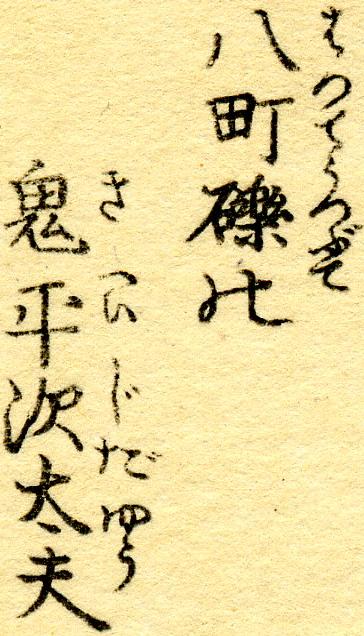 はつてうつぶて
八町礫の
きへいじだゆう
鬼平次太夫